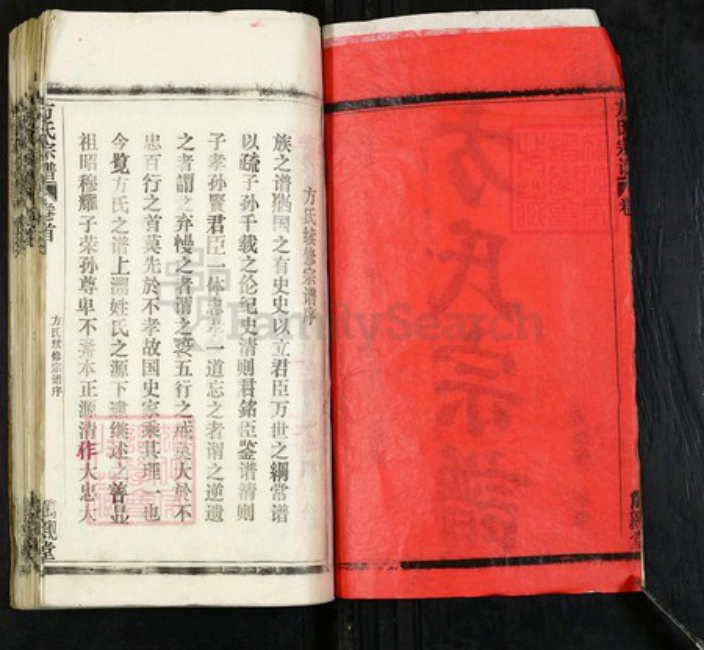 方氏宗谱
卷
方氏宗譜
方氏续修宗谱序
族之谱猶国之有史史以立君臣万世之綱常谱
以疏子孙千载之伦纪史清则君銘臣鉴谱清则
子孝孙賢君臣一体忠孝一道忘之者谓之逆遗
之者謂之弃慢之者谓之 五行之成莫大於不
忠百行之首莫先於不孝故国史家乘其理一也
今覽方氏之谱上溯姓氏之源下建继述之善显
祖昭穆耀子荣孙尊卑不紊本正源清作大忠大
方氏宗譜
卷首
方氏续修宗谱序
FamilySearch